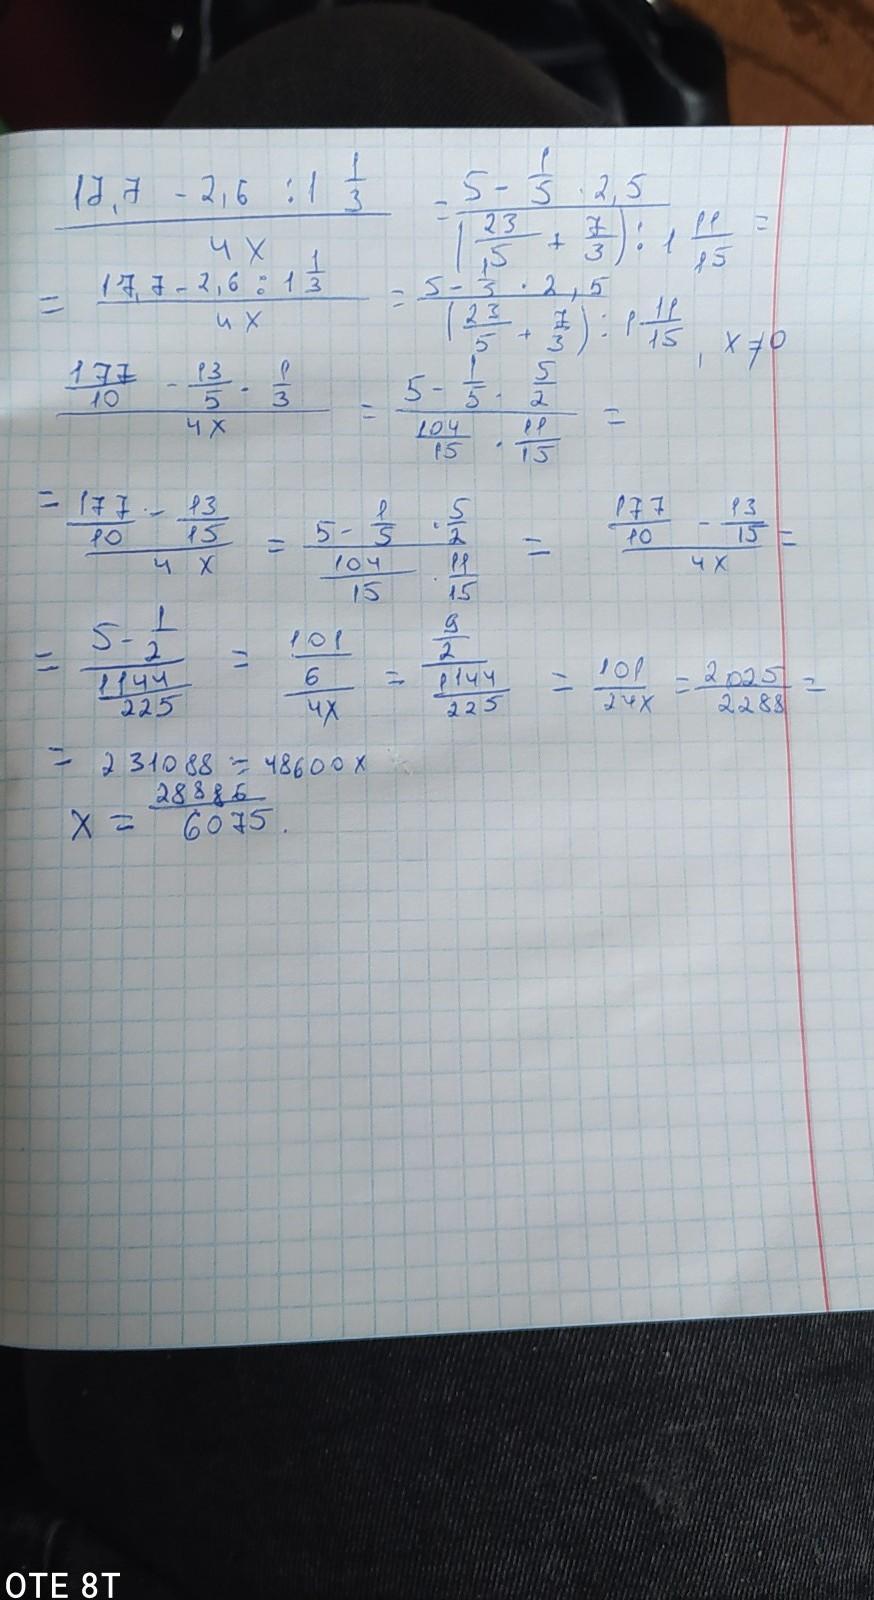 (17,7 - 2,6 : 1 1/3) / (4x) = (5 - 1/5 · 2,5) / ((23/15 + 7/3) : 1 11/15) =
= (17,7 - 2,6 : 1 1/3) / (4x) = (5 - 1/3 · 2,5) / ((23/5 + 7/3) : 1 11/15), x ≠ 0
(177/10 - 13/5 · 1/3) / (4x) = (5 - 1/5 · 5/2) / (104/15 · 11/15) =
= (177/10 - 13/15) / (4x) = (5 - 1/5 · 5/2) / (104/15 · 11/15) = (177/10 - 13/15) / (4x) =
= (5 - 1/2) / (1144/225) = (101/6) / (4x) = (9/2) / (1144/225) = 101/24x = 2025/2288 =
= 231088 = 48600x
x = 28886/6075.
OTE 8T